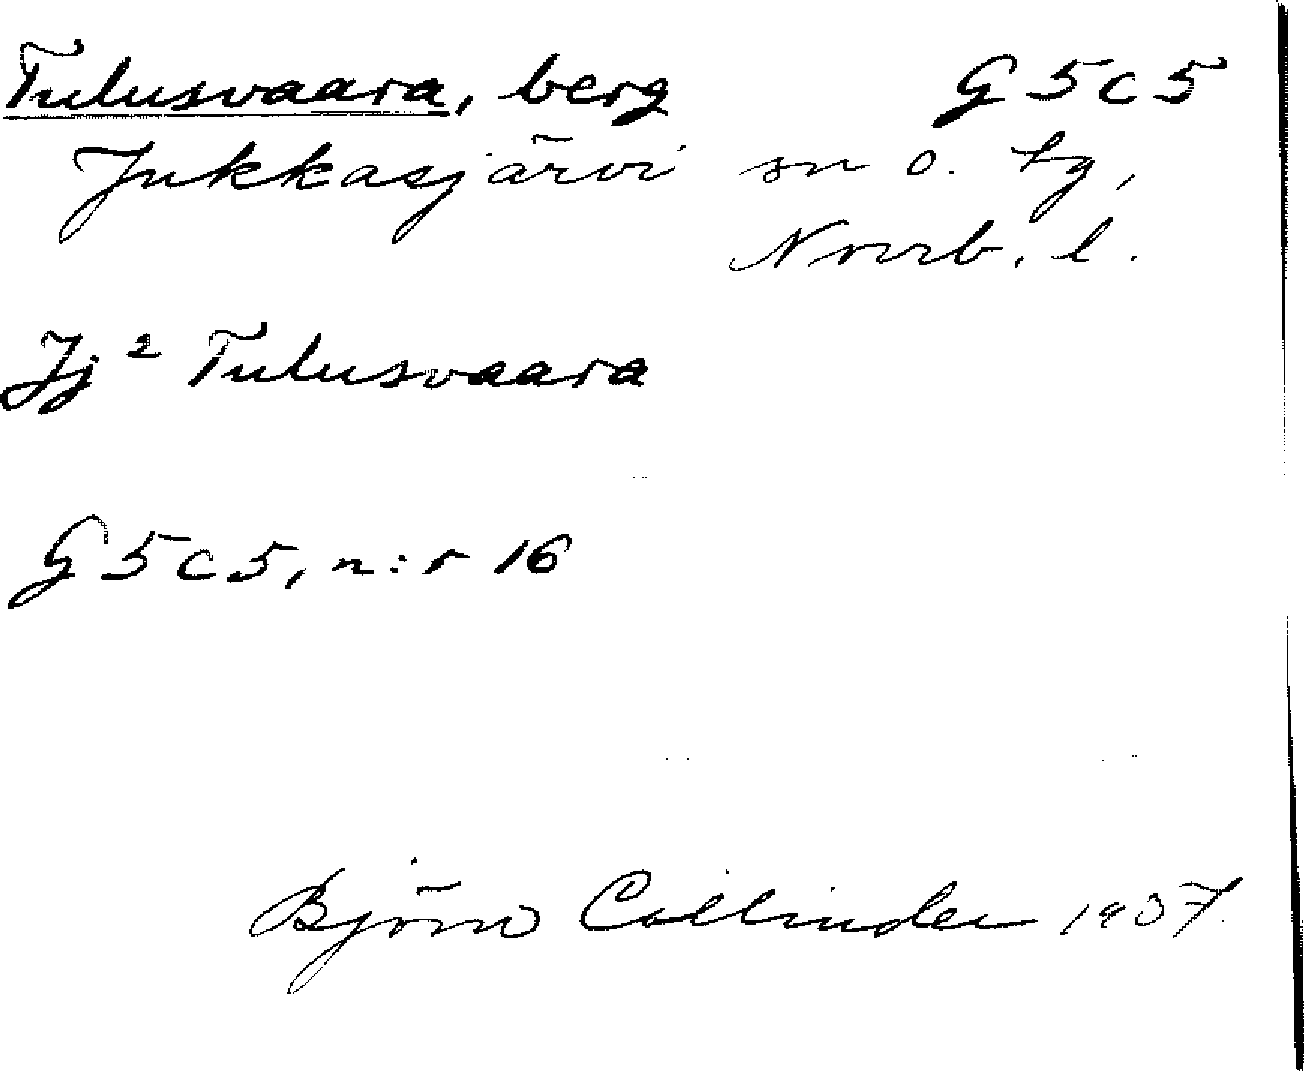 Tulusvaara, berg G 5 c 5
Jukkasjärvi sn o. tg,
Norrb. l.
Jj² Tulusvaara
G 5 c 5, n:r 16
Björn Collinder 1937.